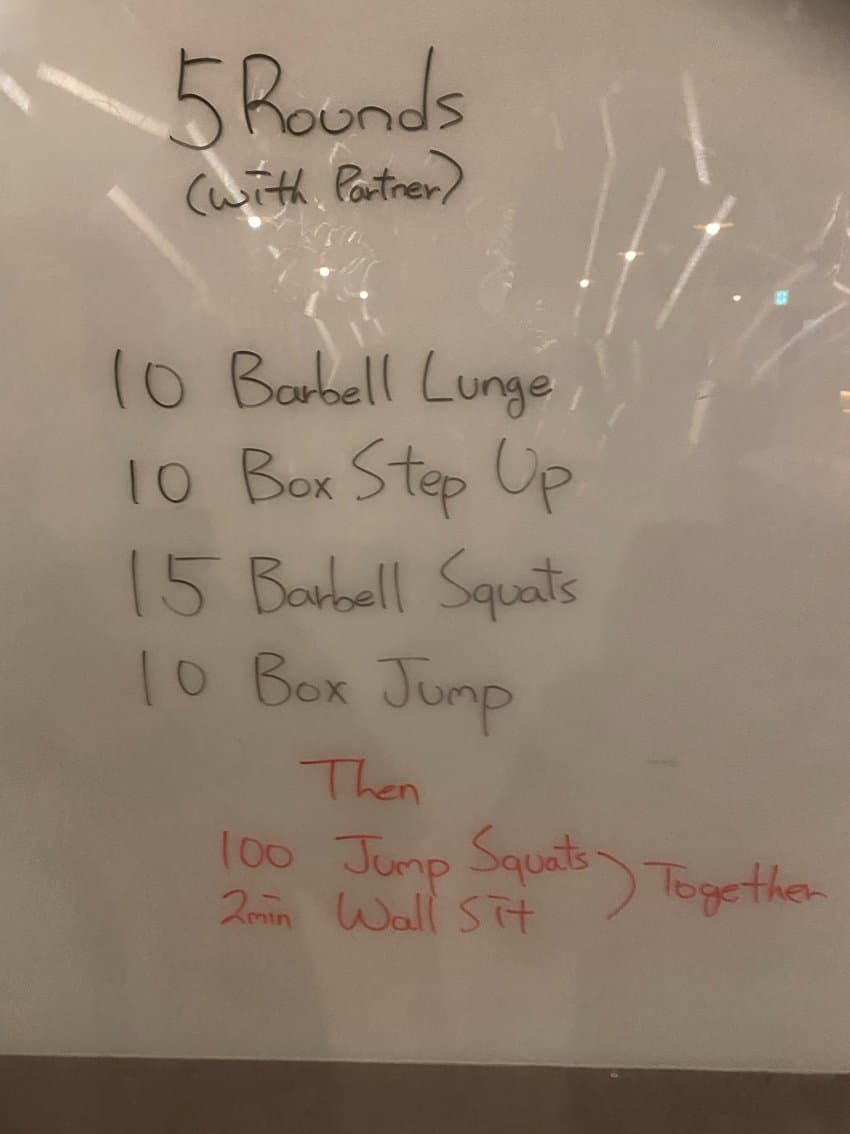 5 Rounds
(with Partner)
10 Barbell Lunge
10 Box Step Up
15 Barbell Squats
10 Box Jump
Then
100 Jump Squats
2min Wall Sit
) Together